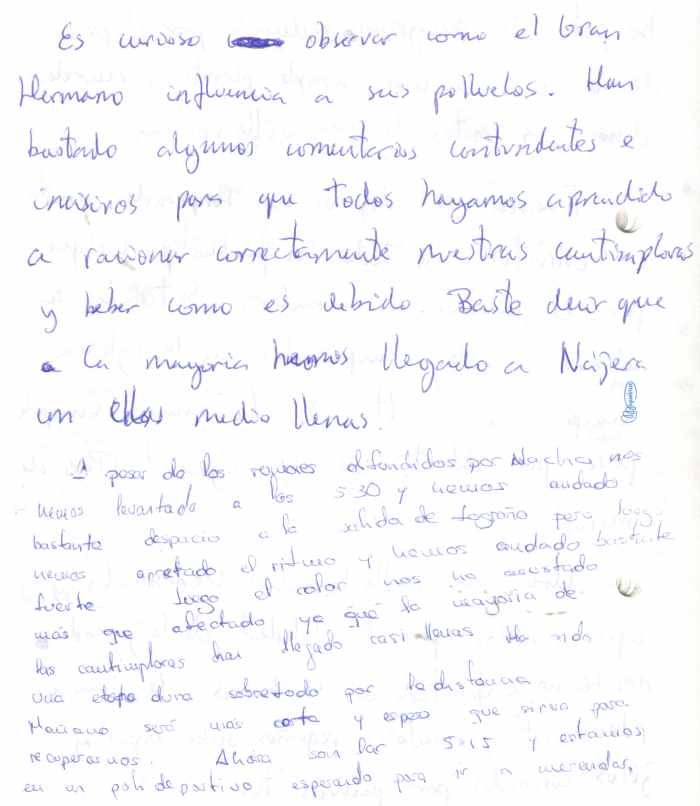 Es curioso observar como el Gran
Hermano influencia a sus polluelos. Han
bastado algunos comentarios contundentes e
incisivos para que todos hayamos aprendido
a racionar correctamente nuestras cantimploras
y beber como es debido. Baste decir que
la mayoria hemos llegado a Nájera
con ellas medio llenas.
A pesar de los rumores difundidos por Nacho, nos
hemos levantado a las 5 30 y hemos andado
bastante despacio a la salida de Logroño pero luego
hemos apretado el ritmo y hemos andado bastante
fuerte luego el calor nos ha asustado
más que afectado ya que la mayoria de
las cantimploras han llegado casi llenas. Ha sido
una etapa dura sobretodo por la distancia
Mañana será más corta y espero que sirva para
recuperarnos. Ahora son las 5:15 y estamos
en un polideportivo esperando para ir a merendar,